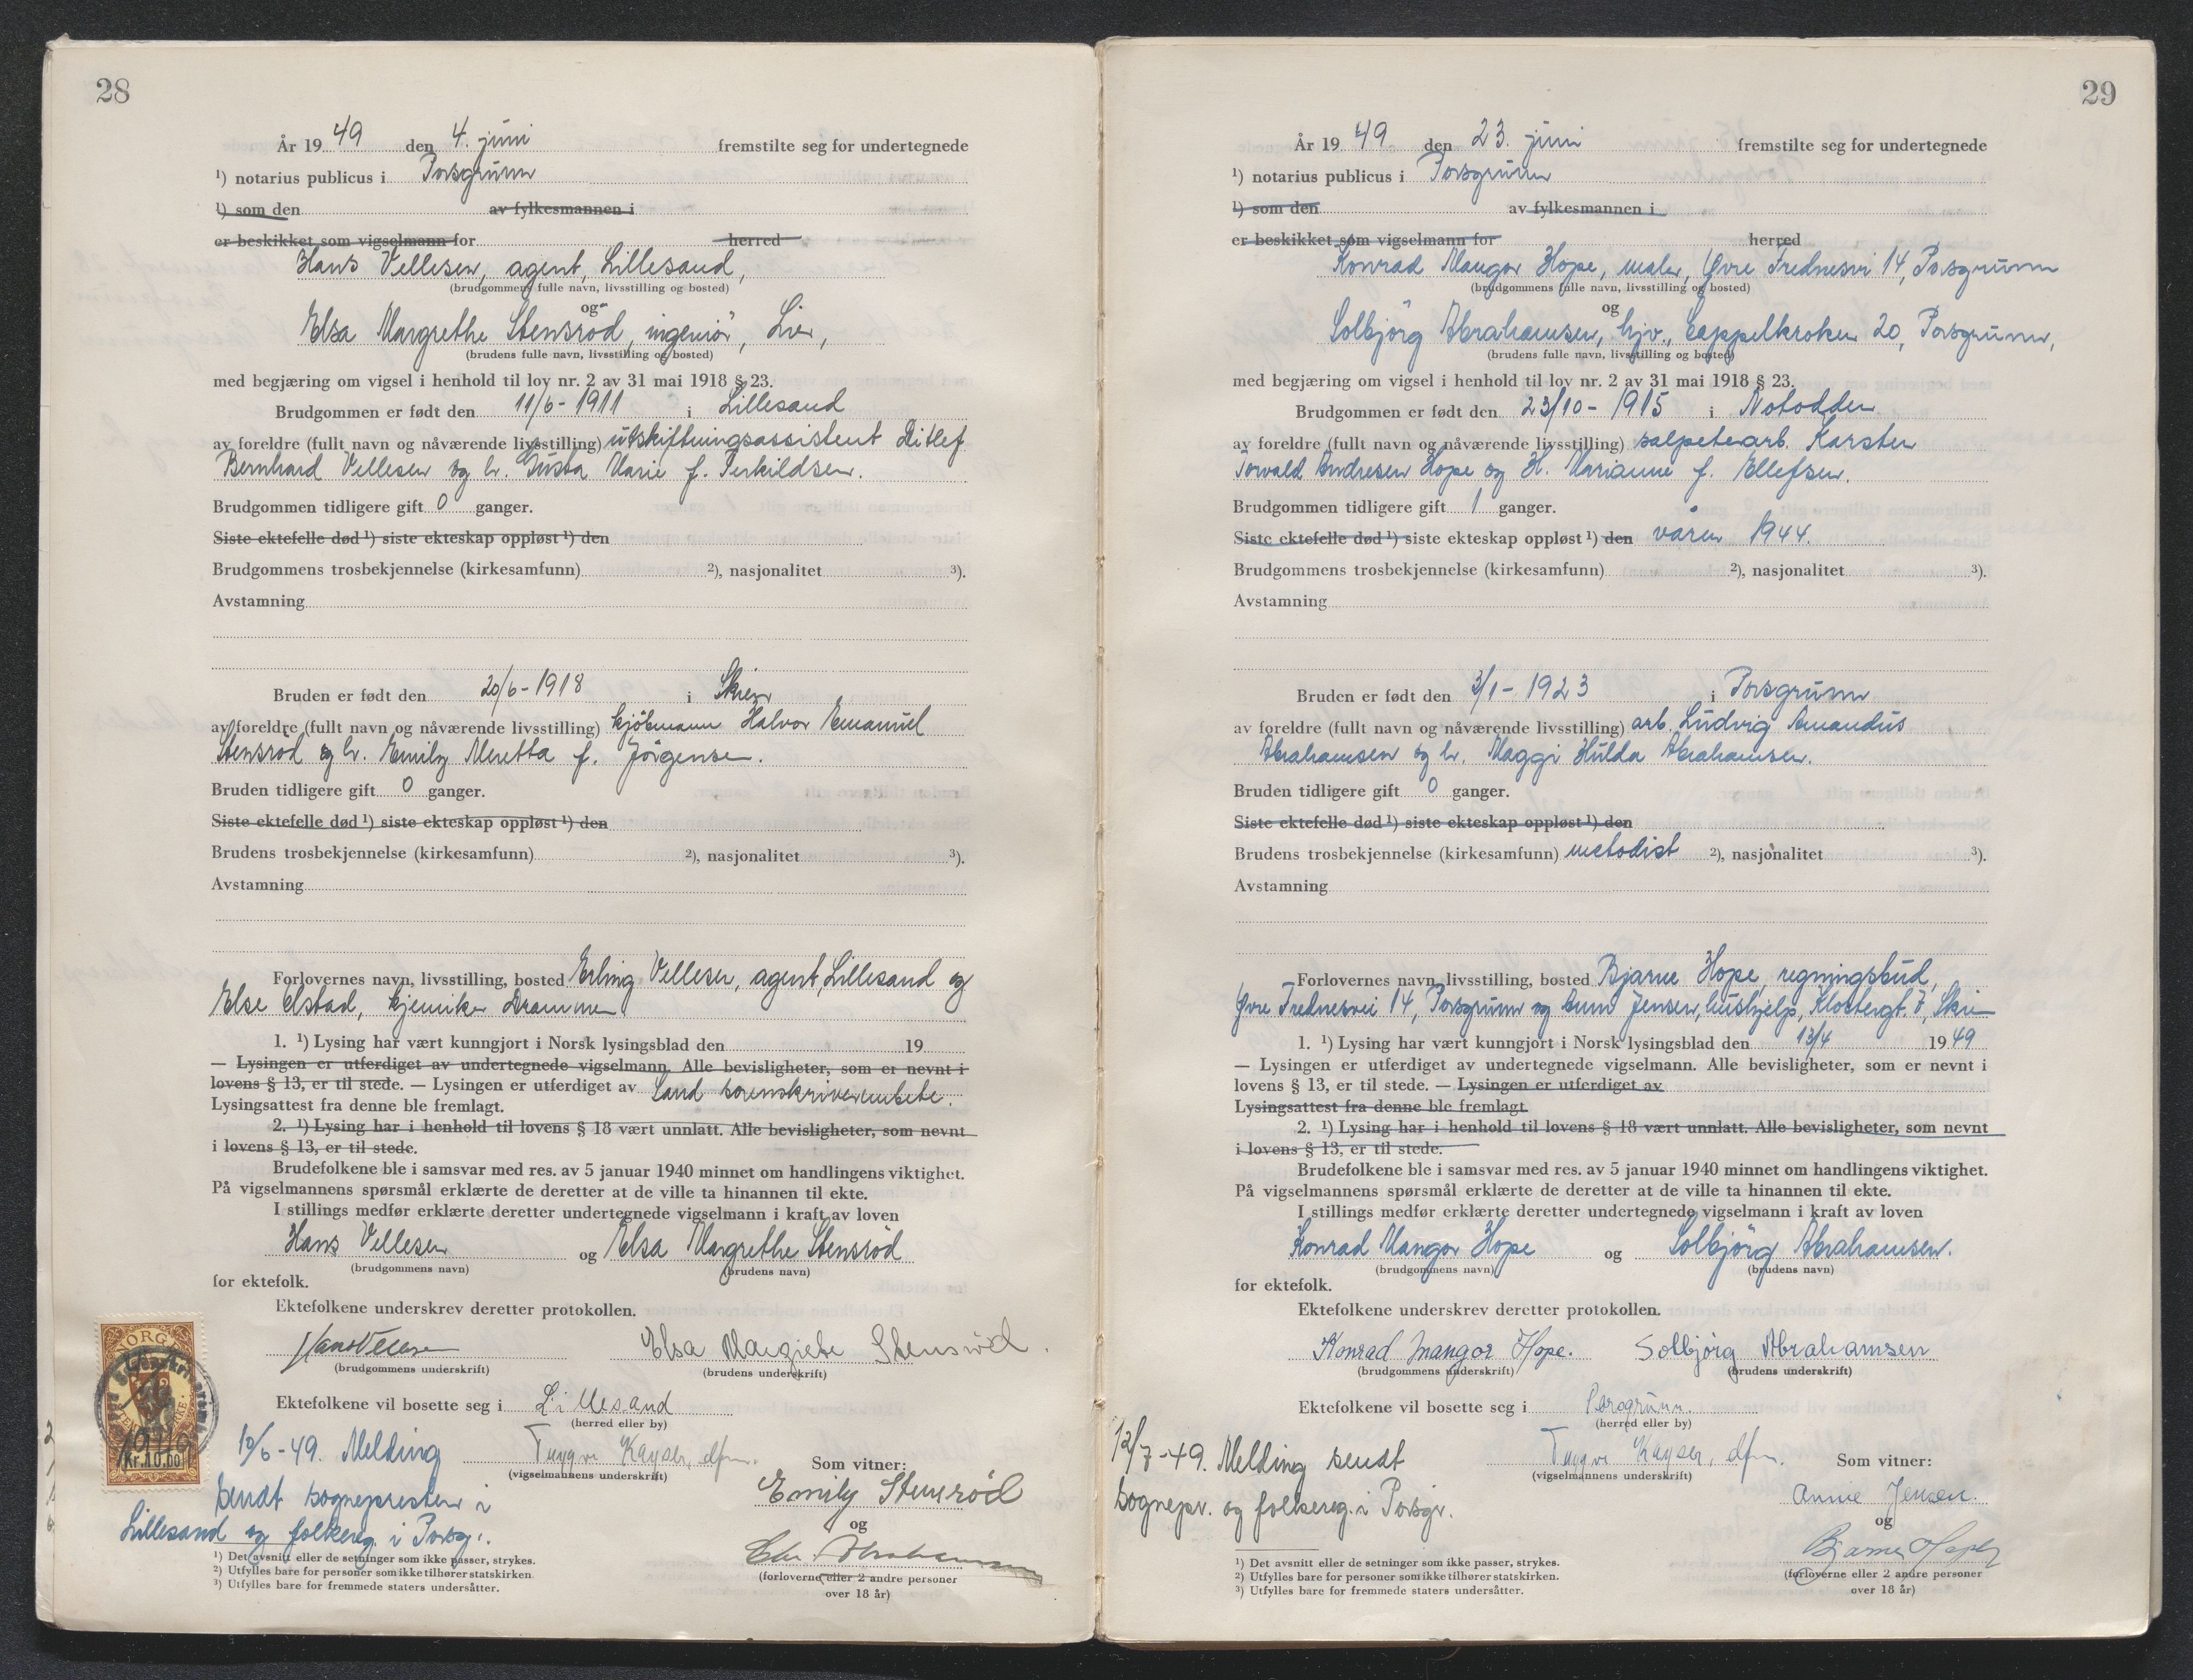 28
År 19 49 den 4. juni fremstilte seg for undertegnede
¹) notarius publicus i Porsgrunn
¹) som den av fylkesmannen i
er beskikket som vigselmann for herred
Hans Vellesen, agent, Lillesand,
(brudgommens fulle navn, livsstilling og bosted)
og
Elsa Margrethe Stensrød, ingeniør, Lier,
(brudens fulle navn, livsstilling og bosted)
med begjæring om vigsel i henhold til lov nr. 2 av 31 mai 1918 § 23.
Brudgommen er født den 11/6 - 1911 i Lillesand
av foreldre (fullt navn og nåværende livsstilling) utskiftningsassistent Ditlef
Bernhard Vellesen og h. Gusta Marie f. Terkildsen.
Brudgommen tidligere gift 0 ganger.
Siste ektefelle død ¹) siste ekteskap oppløst ¹) den
Brudgommens trosbekjennelse (kirkesamfunn) ²), nasjonalitet ³).
Avstamning
Bruden er født den 20/6 - 1918 i Skien
av foreldre (fullt navn og nåværende livsstilling) kjøbmann Halvor Emanuel
Stensrød og h. Emily Meretta f. Jørgensen.
Bruden tidligere gift 0 ganger.
Siste ektefelle død ¹) siste ekteskap oppløst ¹) den
Brudens trosbekjennelse (kirkesamfunn) ²), nasjonalitet ³).
Avstamning
Forlovernes navn, livsstilling, bosted Erling Vellesen, agent, Lillesand og
Else Elstad, kjemiker Drammen
1. ¹) Lysing har vært kunngjort i Norsk lysingsblad den 19
— Lysingen er utferdiget av undertegnede vigselmann. Alle bevisligheter, som er nevnt i
lovens § 13, er til stede. — Lysingen er utferdiget av Sand sorenskriverembete.
Lysingsattest fra denne ble fremlagt.
2. ¹) Lysing har i henhold til lovens § 18 vært unnlatt. Alle bevisligheter, som nevnt
i lovens § 13, er til stede.
Brudefolkene ble i samsvar med res. av 5 januar 1940 minnet om handlingens viktighet.
På vigselmannens spørsmål erklærte de deretter at de ville ta hinannen til ekte.
I stillings medfør erklærte deretter undertegnede vigselmann i kraft av loven
Hans Vellesen og Elsa Margrethe Stensrød
(brudgommens navn) (brudens navn)
for ektefolk.
Ektefolkene underskrev deretter protokollen.
Hans Vellesen Elsa Margrete Stensrød.
(brudgommens underskrift) (brudens underskrift)
Ektefolkene vil bosette seg i Lillesand
(herred eller by)
NORGE
Kr. 10.00
10/6 - 49. Melding
sendt sognepresten i
Lillesand og folkereg. i Porsg.
Trygve Kayser, dfm.
(vigselmannens underskrift)
Som vitner:
Emily Stensrød
og
Chr. Abrahamsen
(forloverne eller 2 andre personer
over 18 år)
¹) Det avsnitt eller de setninger som ikke passer, strykes.
²) Utfylles bare for personer som ikke tilhører statskirken.
³) Utfylles bare for fremmede staters undersåtter.
29
År 19 49 den 23. juni fremstilte seg for undertegnede
¹) notarius publicus i Porsgrunn
¹) som den av fylkesmannen i
er beskikket som vigselmann for herred
Konrad Mangor Hope, maler, Øvre Frednesvei 14, Porsgrunn
(brudgommens fulle navn, livsstilling og bosted)
og
Solbjørg Abrahamsen, hjv., Cappelkroken 20, Porsgrunn,
(brudens fulle navn, livsstilling og bosted)
med begjæring om vigsel i henhold til lov nr. 2 av 31 mai 1918 § 23.
Brudgommen er født den 23/10 - 1915 i Notodden
av foreldre (fullt navn og nåværende livsstilling) salpeterarb. Karsten
Torvald Andresen Hope og H. Marianne f. Ellefsen.
Brudgommen tidligere gift 1 ganger.
Siste ektefelle død ¹) siste ekteskap oppløst ¹) den våren 1944.
Brudgommens trosbekjennelse (kirkesamfunn) ²), nasjonalitet ³).
Avstamning
Bruden er født den 3/1 - 1923 i Porsgrunn
av foreldre (fullt navn og nåværende livsstilling) arb. Ludvig Amandus
Abrahamsen og h. Maggi Hulda Abrahamsen.
Bruden tidligere gift 0 ganger.
Siste ektefelle død ¹) siste ekteskap oppløst ¹) den
Brudens trosbekjennelse (kirkesamfunn) metodist ²), nasjonalitet ³).
Avstamning
Forlovernes navn, livsstilling, bosted Bjarne Hope, regningsbud,
Øvre Frednesvei 14, Porsgrunn og Anna Jensen, hushjelp, Klostergt. 7, Skien
1. ¹) Lysing har vært kunngjort i Norsk lysingsblad den 13/4 19 49
— Lysingen er utferdiget av undertegnede vigselmann. Alle bevisligheter, som er nevnt i
lovens § 13, er til stede. — Lysingen er utferdiget av
Lysingsattest fra denne ble fremlagt
2. ¹) Lysing har i henhold til lovens § 18 vært unnlatt. Alle bevisligheter, som nevnt
i lovens § 13, er til stede.
Brudefolkene ble i samsvar med res. av 5 januar 1940 minnet om handlingens viktighet.
På vigselmannens spørsmål erklærte de deretter at de ville ta hinannen til ekte.
I stillings medfør erklærte deretter undertegnede vigselmann i kraft av loven
Konrad Mangor Hope og Solbjørg Abrahamsen.
(brudgommens navn) (brudens navn)
for ektefolk.
Ektefolkene underskrev deretter protokollen.
Konrad Mangor Hope. Solbjørg Abrahamsen
(brudgommens underskrift) (brudens underskrift)
Ektefolkene vil bosette seg i Porsgrunn.
(herred eller by)
12/7 - 49. Melding sendt
sognepr. og folkereg. i Porsgr.
Trygve Kayser, dfm.
(vigselmannens underskrift)
Som vitner:
Annie Jensen.
og
Bjarne Hope
(forloverne eller 2 andre personer
over 18 år)
¹) Det avsnitt eller de setninger som ikke passer, strykes.
²) Utfylles bare for personer som ikke tilhører statskirken.
³) Utfylles bare for fremmede staters undersåtter.